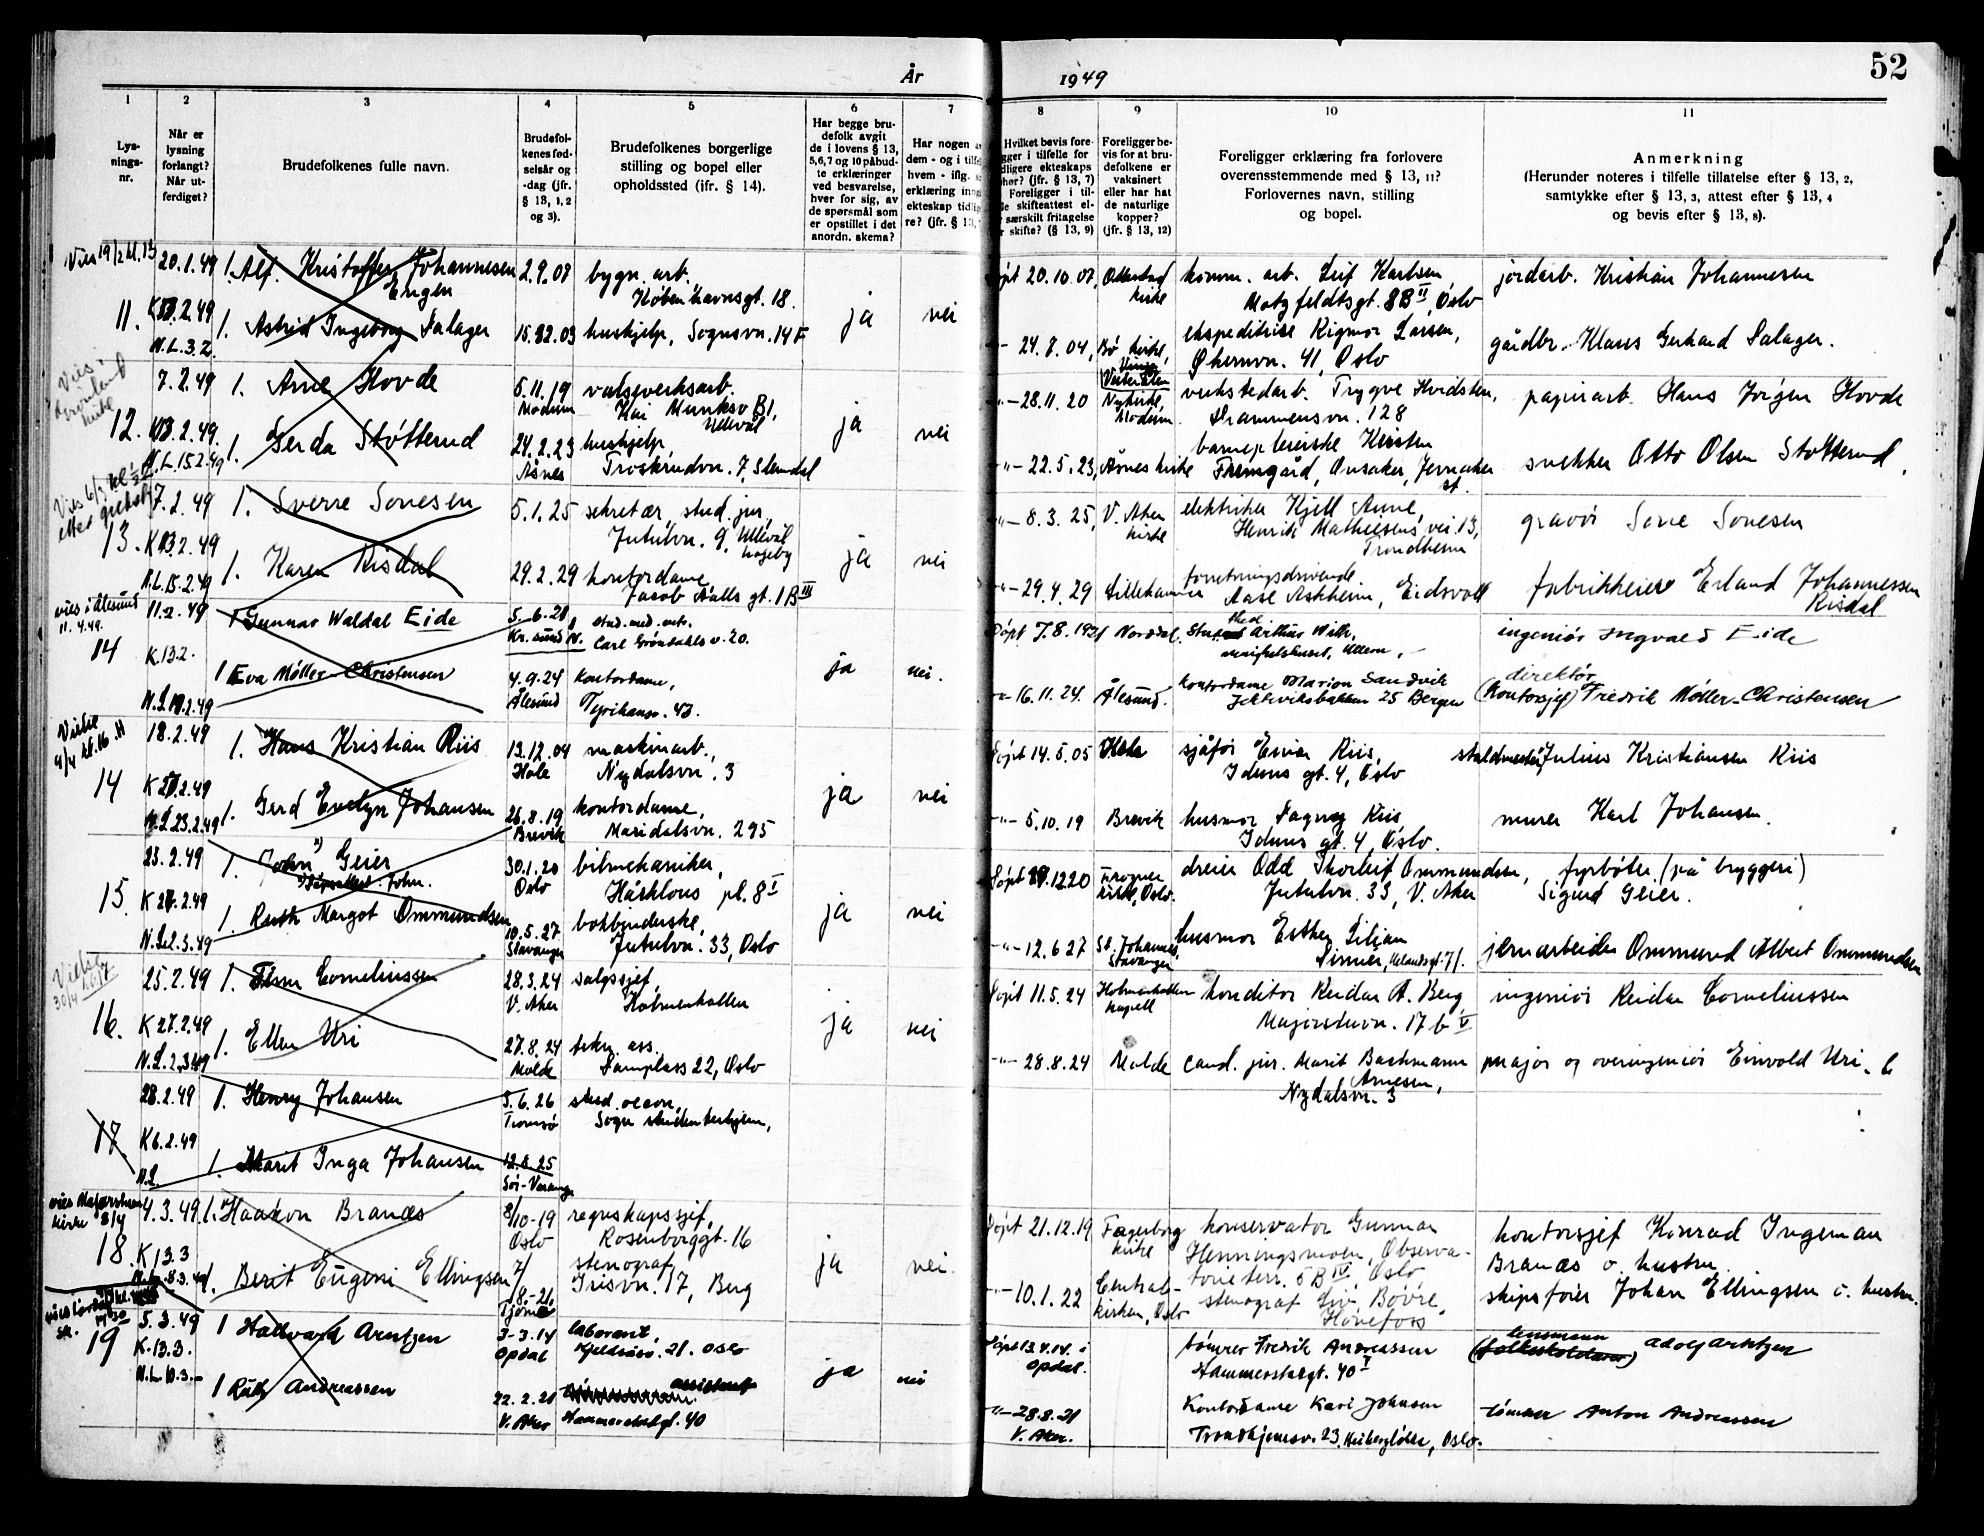 År 1949
52
1 2 3 4 5 6 7 8 9 10 11
Lys-
nings-
nr.
Når er
lysning
forlangt?
Når ut-
ferdiget?
Brudefolkenes fulle navn.
Brudefol-
kenes fød-
selsår og
-dag (jfr.
§ 13, 1, 2
og 3).
Brudefolkenes borgerlige
stilling og bopel eller
opholdssted (jfr. § 14).
Har begge bru-
defolk avgit
de i lovens § 13,
5,6,7 og 10 påbud-
te erklæringer
ved besvarelse,
hver for sig, av
de spørsmål som
er opstillet i det
anordn. skema?
Har nogen
dem - og i tilfe
hvem - iflg.
erklæring inn
ekteskap tidli
re? (jfr. § 13,
Hvilket bevis fore-
gger i tilfelle for
dligere ekteskaps
hør? (jfr. § 13, 7)
Foreligger i til-
le skifteattest el-
særskilt fritagelse
skifte? (§ 13, 9)
Foreligger be-
vis for at bru-
defolkene er
vaksinert
eller har hat
de naturlige
kopper?
(jfr. § 13, 12)
Foreligger erklæring fra forlovere
overensstemmende med § 13, 11?
Forlovernes navn, stilling
og bopel.
Anmerkning
(Herunder noteres i tilfelle tillatelse efter § 13, 2,
samtykke efter § 13, 3, attest efter § 13, 4
og bevis efter § 13, 8).
Vies 19/2 kl. 13
20.1.49 1. Alf Kristoffer Johannesen 2.9.08 bygn. arb. Døpt 20.10.08, kirke komm. arb. Leif Karlsen jordarb. Kristian Johannesen
Engen Københavnsgt. 18. Motzfeldtsgt. 8B II, Oslo
11. 2.49 1. Astrid Ingeborg Salager 15.12.03 hushjelp, Sognsvn. 14 F ja nei -"- 24.8.04, Bø kirke, ekspeditrise Rigmor Larsen, gårdbr. Klaus Gerhard Salager.
N.L. 3.2. Økernvn. 41, Oslo
Vies i
kirke
7.2.49 1. Arne Hovde 5.11.19 valseverksarb. -"- 28.11.20 Nykirke, verkstedarb. Trygve Hvidsten, papirarb. Hans Jørgen Hovde
Modum Kai Munksv B1, Modum. Drammensvn. 128
Ullevål
12. K13.2.49. 1. Gerda Støtterud 24.2.23 hushjelp, ja nei -"- 22.5.23, Åsnes kirke barnepleierske Kirsten snekker Otto Olsen Støtterud.
N.L. 15.2.49 Åsnes Troskendvn. 7, Slemdal Fremgård, Jevnaker
st.
Vies 6/3 kl
etter gudstj.
7.2.49 1. Sverre Sonesen 5.1.25 sekretær, stud. jur, -"- 8.3.25, V. Aker elektriker Kjell Aune, gravør Sone Sonesen
Jutulvn. 9, Ullevål kirke Henrik Mathiesens vei 13,
hageby Trondheim
13. K13.2.49 1. Karen Risdal 29.2.29 kontordame, ja nei -"- 29.4.29 Lillehammer forretningsdrivende fabrikkeier Erland Johannessen
N.L. 15.2.49 Jacob Aalls gt. 1 B III Aase Askheim, Eidsvoll Risdal
vies i Ålesund
11.4.49.
11.2.49 1 Gunnar Waldal Eide 5.6.20 stud. med. vet. Døpt 7.8.1921 Norddal. Stud. Med Arthur Wilh. ingeniør Ingvald Eide
Kr.sund N. Carl Grøndahls v. 20.
14 K.13.2. 1 Eva Møller-Christensen 4.9.24 kontordame, ja nei. -"- 16.11.24. Ålesund. kontordame Marion Sandvik direktør
N.L. 2.49 Ålesund Tyrihansv. 43. Jekteviksbakken 25 Bergen (Kontorsjef) Fredrik Møller-Christensen
Vielse
4/4 kl. 16
18.2.49 1. Hans Kristian Riis 13.12.04 maskinarb., Døpt 14.5.05 Hole sjåfør Einar Riis, staldmester Julius Kristiansen Riis
Hole Nydalsvn. 3 Iduns gt. 4, Oslo
14 K 2.49 1. Gerd Evelyn Johansen 26.8.19 kontordame, ja nei -"- 5.10.19 Brevik husmor Dagny Riis murer Karl Johansen.
N.L. 23.2.49 Brevik Maridalsvn. 295 Iduns gt. 4, Oslo.
23.2.49 1. John Geier 30.1.20 bilmekaniker, Døpt 1220 Frogner dreier Odd Thorleif Ommundsen, fyrbøter (på bryggeri)
Dåpsattest. John. Oslo Hårklous pl. 8 I kirke, Oslo. Jutulvn. 33, V. Aker Sigurd Geier.
15. K 2.49 1. Ruth Margot Ommundsen 10.5.27 bokbinderske, ja nei -"- 12.6.27 St. Johannes, husmor Esther Lilian jernarbeider Ommund Albert Ommundsen
N.L. 2.3.49 Stavanger Jutulvn. 33, Oslo Stavanger
Vielse
30/4
25.2.49 1. Finn Corneliussen 28.3.24 salgssjef, Døpt 11.5.24 Holmenkollen konditor Reidar A. Berg ingeniør Reidar Corneliussen
V. Aker Holmenkollen kapell Majorstuvn. 17 b V
16. K 27.2.49 1. Ellen Uri 27.8.24 tekn. ass. ja nei -"- 28.8.24 Molde cand. jur. Marit Bachmann major og overingeniør Einvold Uri.
N.L. 2.3.49 Molde Damplass 22, Oslo Arnesen,
Nydalsvn. 3
28.2.49 1. Henry Johansen 5.6.26 stud. oecon,
Tromsø Sogn studenterhjem,
17. K6.2.49
N.L. 1. Marit Inga Johansen 12.8.25
Sør-Varanger
vies Majorstuen
kirke 8/4
4.3.49. 1. Haakon Branæs 8/10-19 regnskapssjef, Døpt 21.12.19 Fagerborg konservator Gunnar kontorsjef Konrad Ingeman
Oslo Rosenborggt. 16 kirke Henningsmoen, Observa- Branæs o. hustru.
18. K 13.3 1. Berit Eugeni Ellingsen 7/8.-21 stenograf ja nei. -"- 10.1.22 Central- toriterr. 5 B IV, Oslo skipsfører Johan Ellingsen o. hustru.
N.L. 8.3.49 Tjøme Irisvn. 17, Berg kirken, Oslo stenograf Liv Bovre,
Hønefoss
5.3.49 1 Hallvard Arntzen 3-3.14 laborant, Døpt 13.4.14. i tømrer Fredrik Andreassen lensmann Adolf Arntzen
19 K.13.3. Opdal Kjeldsåsv. 21. Oslo ja nei Opdal. Hammerstadgt. 40 I
N.L. 10.3. 1 Ruth Andreassen 22.2.21 assistent -"- 28.8.21 Kontordame Kari Johnsen tømmer Anton Andreassen
V. Aker Hammerstadgt. 40 V. Aker. Trondhjemsv. 23, Oslo.